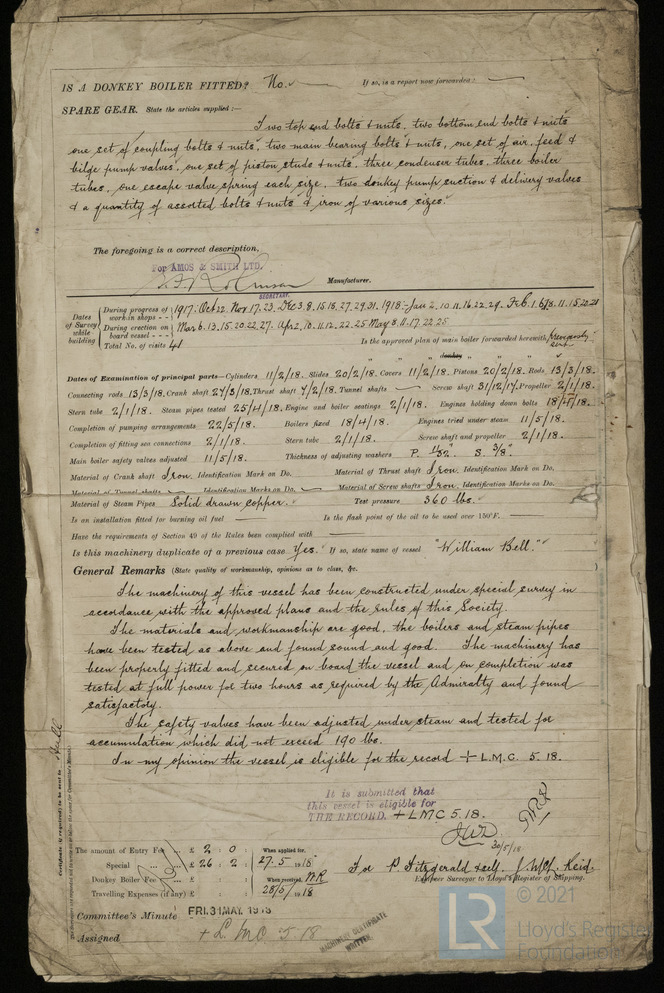 IS A DONKEY BOILER FITTED? No. If so, is a report now forwarded?
SPARE GEAR. State the articles supplied:—
Two top end bolts & nuts, two bottom end bolts & nuts
one set of coupling bolts & nuts, two main bearing bolts & nuts, one set of air, feed &
bilge pump valves, one set of piston studs & nuts, three condenser tubes, three boiler
tubes, one escape valve spring each size, two donkey pump suction & delivery valves
& a quantity of assorted bolts & nuts & iron of various sizes.
The foregoing is a correct description,
For AMOS & SMITH LTD.
Robinson Manufacturer.
SECRETARY.
Dates of Survey while building
During progress of work in shops - - 1917. Oct 22. Nov 17. 23. Dec 3. 8. 15. 18. 27. 29. 31. 1918. Jan 2. 10. 11. 16. 22. 29. Feb. 1. 8. 11. 15. 20. 21
During erection on board vessel - - - Mar 6. 13. 15. 20. 22. 27. Apr 2. 10. 11. 12. 22. 25 May 8. 11. 17. 22. 25
Total No. of visits 41 Is the approved plan of main boiler forwarded herewith Previously sent
" " " donkey " " "
Dates of Examination of principal parts—Cylinders 11/2/18. Slides 20/2/18. Covers 11/2/18. Pistons 20/2/18. Rods 13/3/18.
Connecting rods 13/3/18. Crank shaft 27/3/18. Thrust shaft 4/2/18. Tunnel shafts — Screw shaft 31/12/17. Propeller 2/1/18.
Stern tube 2/1/18. Steam pipes tested 25/4/18. Engine and boiler seatings 2/1/18. Engines holding down bolts 18/4/18.
Completion of pumping arrangements 22/5/18. Boilers fixed 18/4/18. Engines tried under steam 11/5/18.
Completion of fitting sea connections 2/1/18. Stern tube 2/1/18. Screw shaft and propeller 2/1/18.
Main boiler safety valves adjusted 11/5/18. Thickness of adjusting washers P. S. 3/8".
Material of Crank shaft Iron. Identification Mark on Do. Material of Thrust shaft Iron. Identification Mark on Do.
Material of Tunnel shafts — Identification Marks on Do. — Material of Screw shafts Iron. Identification Marks on Do.
Material of Steam Pipes Solid drawn copper. Test pressure 360 lbs.
Is an installation fitted for burning oil fuel — Is the flash point of the oil to be used over 150°F. —
Have the requirements of Section 49 of the Rules been complied with —
Is this machinery duplicate of a previous case Yes. If so, state name of vessel "William Bell."
General Remarks (State quality of workmanship, opinions as to class, &c.
The machinery of this vessel has been constructed under special survey in
accordance with the approved plans and the rules of this Society.
The materials and workmanship are good, the boilers and steam pipes
have been tested as above and found sound and good. The machinery has
been properly fitted and secured on board the vessel and on completion was
tested at full power for two hours as required by the Admiralty and found
satisfactory.
The safety valves have been adjusted under steam and tested for
accumulation which did not exceed 190 lbs.
In my opinion the vessel is eligible for the record + L.M.C. 5.18.
It is submitted that
this vessel is eligible for
THE RECORD. + LMC 5.18.
30/5/18
The amount of Entry Fee ... £ 2 : 0 When applied for,
Special ... £ 26 : 2 27.5.1918
Donkey Boiler Fee ... £ : When received,
Travelling Expenses (if any) £ : 28/5/1918
For P. Fitzgerald & self. Reid.
Engineer Surveyor to Lloyd's Register of Shipping.
Committee's Minute FRI. 31 MAY. 1918
Assigned + L.M.C 5.18
MACHINERY CERTIFICATE
WRITTEN.
Hull
Certificate (if required) to be sent to
© 2021
LR
Lloyd's Register
Foundation